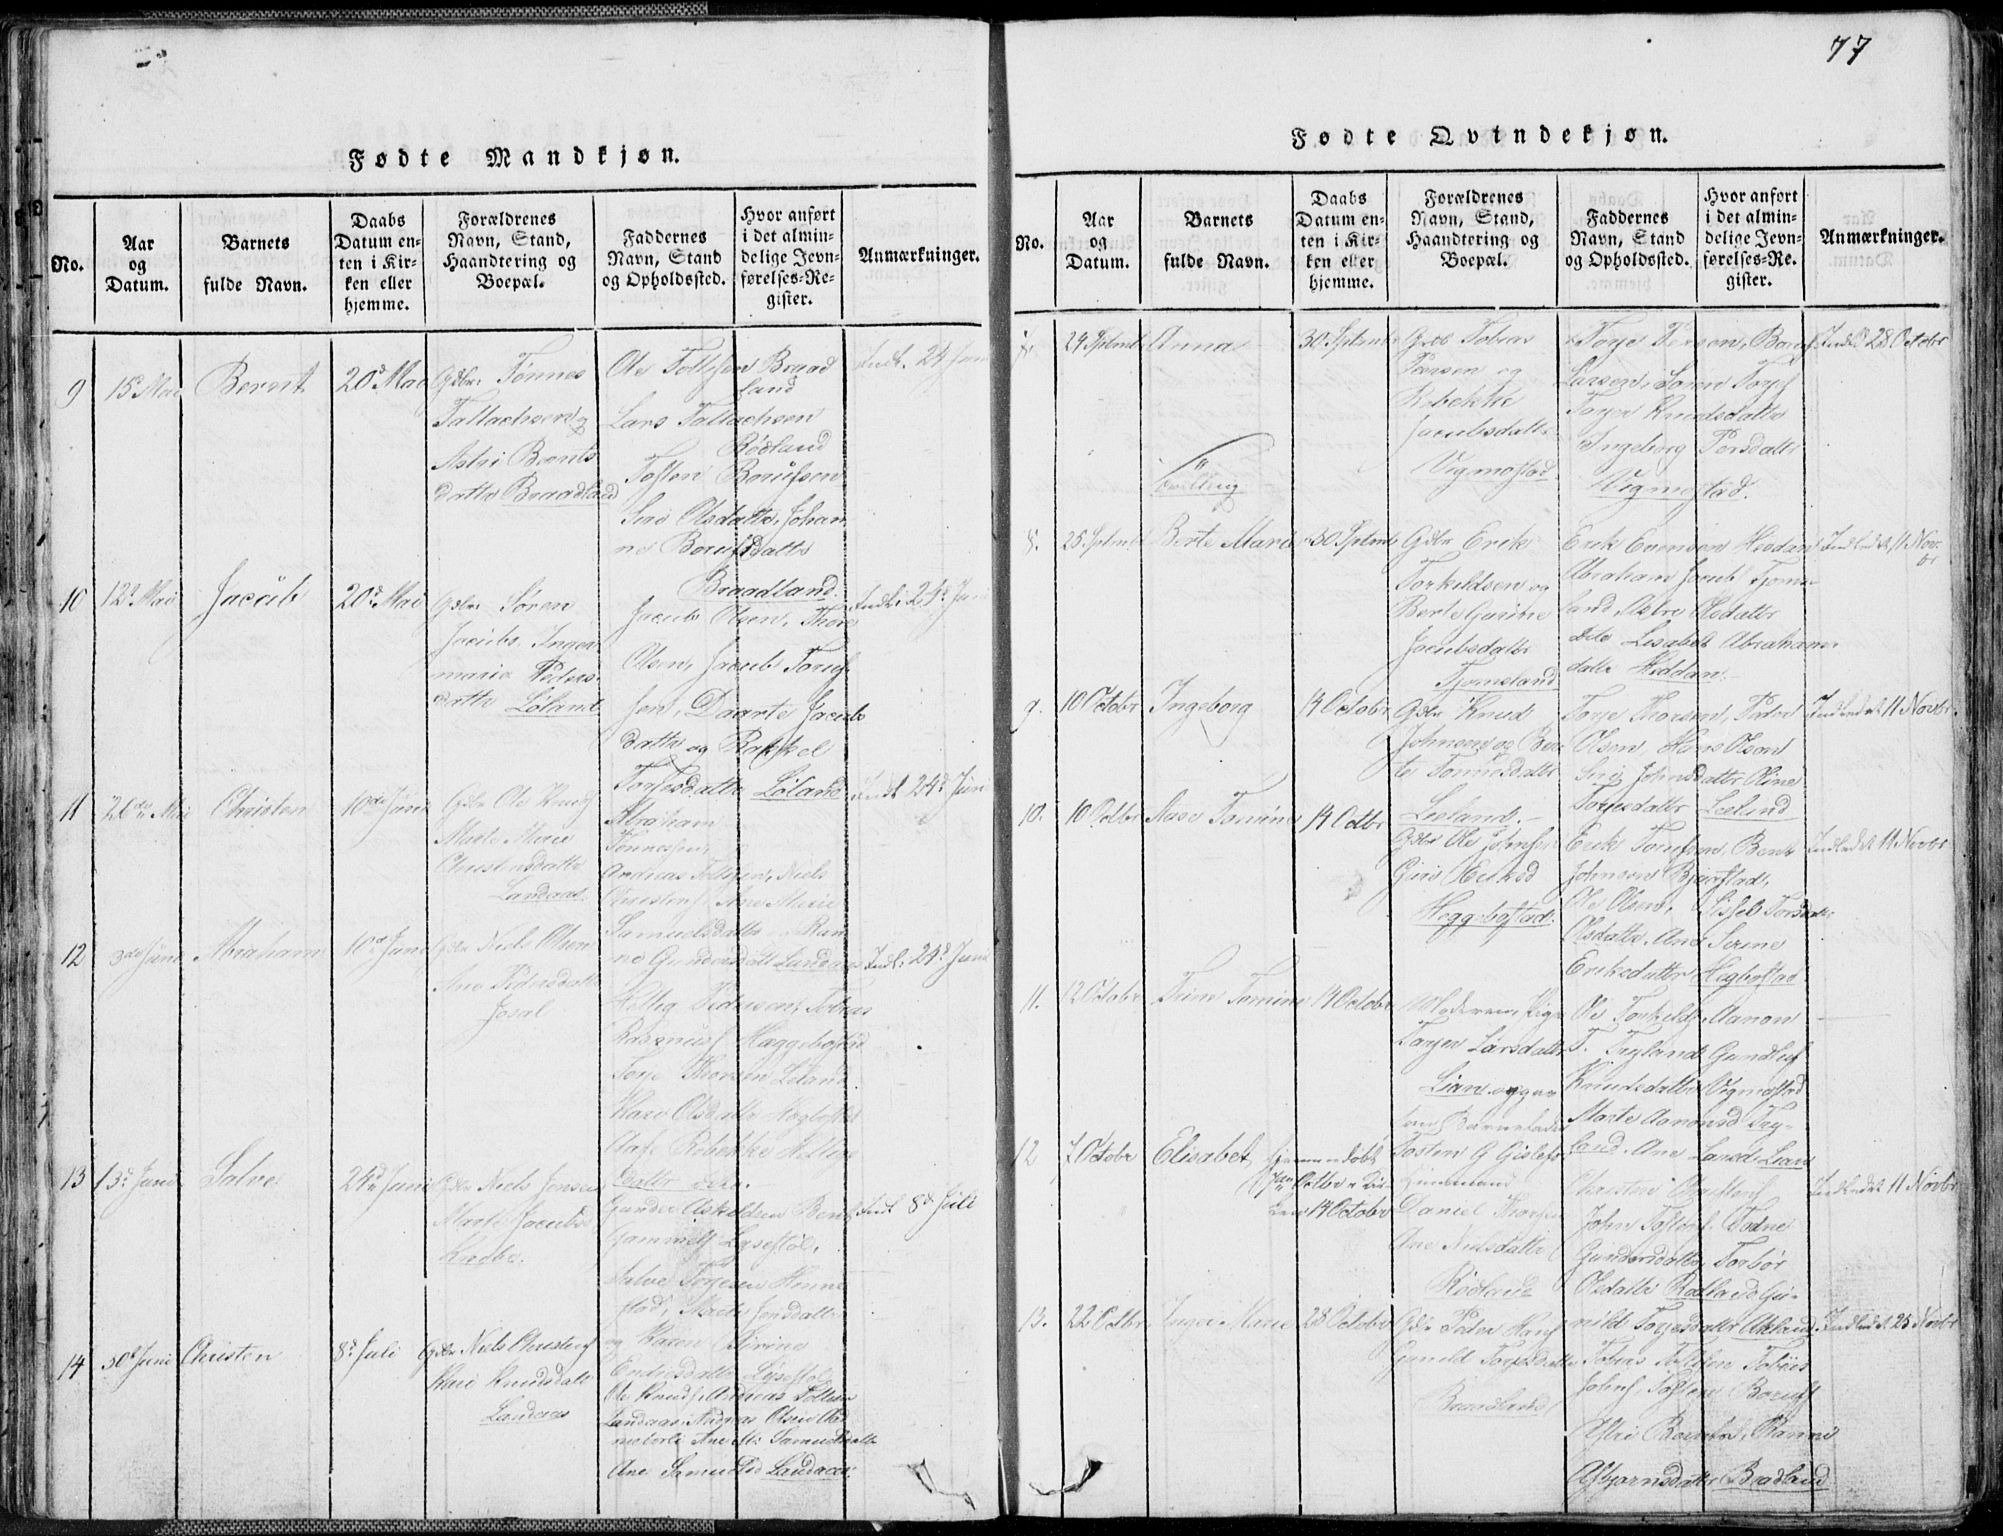 77
Fødte Mandkjøn.
No.
Aar
og
Datum.
Barnets
fulde Navn.
Daabs
Datum en-
ten i Kir-
ken eller
hjemme.
Forældrenes
Navn, Stand,
Haandtering og
Boepæl.
Faddernes
Navn, Stand
og Opholdssted.
Hvor anført
i det almin-
delige Jevn-
førelses-Re-
gister.
Anmærkninger.
9
15d Mai
Bernt
20d Mai
Gdbr Tønnes
Tallachsen og
Astri Bernts
datter Braadland
Ole Tollefsen Braad
land
Lars Tallachsen
Rødland
Tosten Borufsen
Siri Olsdatter, Johan
ne Borufsdatter
Braadland
Indl. 24 Juni
10
12d Mai
Jacob
20d Mai
Gdbr Søren
Jacobs. Inger
maria Peders
datter Løland
Jacob Olsen, Thore
Olsen, Jacob
sen, Daarte Jacobs
datter og Rakkel
Torjesdatter Løland
Indl. 24d Juni
11
26de Mai
Christen
10de Juni
Gdbr Ole Knuds
Marte Marie
Christensdatter
Landaas
Abraham
Tønnessen,
Andreas Tollefsen, Niels
Christens. Ane Marie
Samuelsdatter
Gundersdatt Landaas
Indl 24d Juni
12
3de Juni
Abraham
10d Juni
Gdbr Niels Olsen
Ane Pedersdatter
Josal
Pedersen, Tobias
Rasmus Hæggebostad
Torje Thorsen Leland
Kari Olsdatter Hegbostad
Aase Rebekke
datter
Indl. 24d Juni
13
13d Juni
Salve
24d Juni
Gdbr Niels Jensen
Marte Jacobs
Gunder Askildsen Bent
Lysestøl,
Salve Torjesen Henne
stad, Marte Jensdatter
og Karen Sirine
Endresdatter Lysestøl
Indl 8d Juli
14
30d Juni
Christen
8d Juli
Gdbr Niels Christens
Kari Knudsdatt
Landaas
Ole Knuds. Andreas Tollefsen
Landaas. Andreas Olsen
Ane M: Samuelsdatt
Ane Samuelsd Landaas
Fødte Qvindekjøn.
No.
Aar
og
Datum.
Barnets
fulde Navn.
Daabs
Datum en-
ten i Kir-
ken eller
hjemme.
Forældrenes
Navn, Stand,
Haandtering og
Boepæl.
Faddernes
Navn, Stand
og Opholdssted.
Hvor anført
i det almin-
delige Jevn-
førelses-Re-
gister.
Anmærkninger.
24 Septmb
Anna
Tvilling
30 Septmb
Gdbr Tobias
Pærsen og
Rebekke
Jacobsdatter
Vigmostad
Torje Persen,
Larsen, Søren Torjes
Torjer Knudsdatter
Ingeborg Persdatter
Vigmostad.
Indl 28 Octobr
8.
25 Septmb
Berte Marie
30 Septmb
Gdbr Erik
Torkildsen og
Berte Gurine
Jacobsdatter
Tjomsland
Erik Evensen Heddan
Abraham Jacob Tjoms
land Astri Olsdatter
dito Lisabet Abrahams
datter Heddan.
Indledet 11 Nov.
br
9.
10 Octobr
Ingeborg
14 Octobr
Gdbr Knud
Johnsen og Ber
te Tønnesdatter
Leeland.
Torje Thorsen, Peder
Olsen, Hans Olsen
Siri Johnsdatter Oline
Torjesdatter Leeland
Indledet 11 Novbr.
10.
10 Octbr
Aase Tomine
14 Octbr
Gdbr Ole Johnsen
Giri Eriksd
Heggebostad.
Erik Torufsen, Bent
Johnsen Bjørstad,
Ole Olsen, Sissel Torsdatter
Olsdatter, Ane Serine
Eriksdatter Hegbostad
Indledet 11 Novbr
11.
12 Octobr
Trine Tomine
14 Octobr
Moderen, Pige
Torjer Larsdatter
Lian opgav
som Barnefader
Tosten G Gislefs
Ole Torkelds. Aanon
T. Tryland Gundlef
Knudsdatter Vigmostad
Marte Aanonsd Try-
land. Ane Larsd. Lian
12
7 Octobr
Elisabet
Hjemmedøbt
Octbr
14 Octobr
Daniel Thorsen
Ane Nielsdatter
Rødland
Christen Christens
John Tostens. Todne
Gundersdatter, Torbør
Olsdatter Rødland
Indledet 11 Novbr
13.
22 Octbr
Inger Marie
28 Octobr
Gdbr Peder Hans
Gunild Torjesdatter
Braadland
Gu-
nild Torjesdatter Udland
Tobias Tollefsen Tobias
Johns. Tosten Borufs
Astri Berntsd.
Asbjørnsdatter Bradland
Indledet 25 Novbr